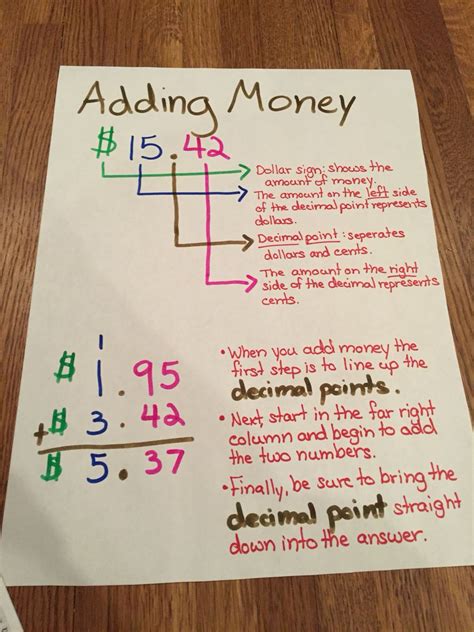 Adding Money
$ 15.42
Dollar sign: shows the
amount of money.
The amount on the left side
of the decimal point represents
dollars.
Decimal point: seperates
dollars and cents.
The amount on the right
side of the decimal represents
cents.
1
$ 1.95
+ $ 3.42
$ 5.37
• When you add money the
first step is to line up the
decimal points.
• Next, start in the far right
column and begin to add
the two numbers.
• Finally, be sure to bring the
decimal point straight
down into the answer.